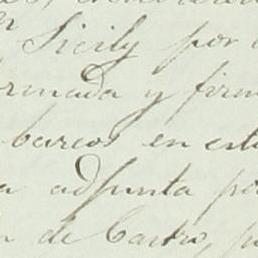 Sicily por
rmada y firm
barcos en est
a adjunta po
n de Castro, p